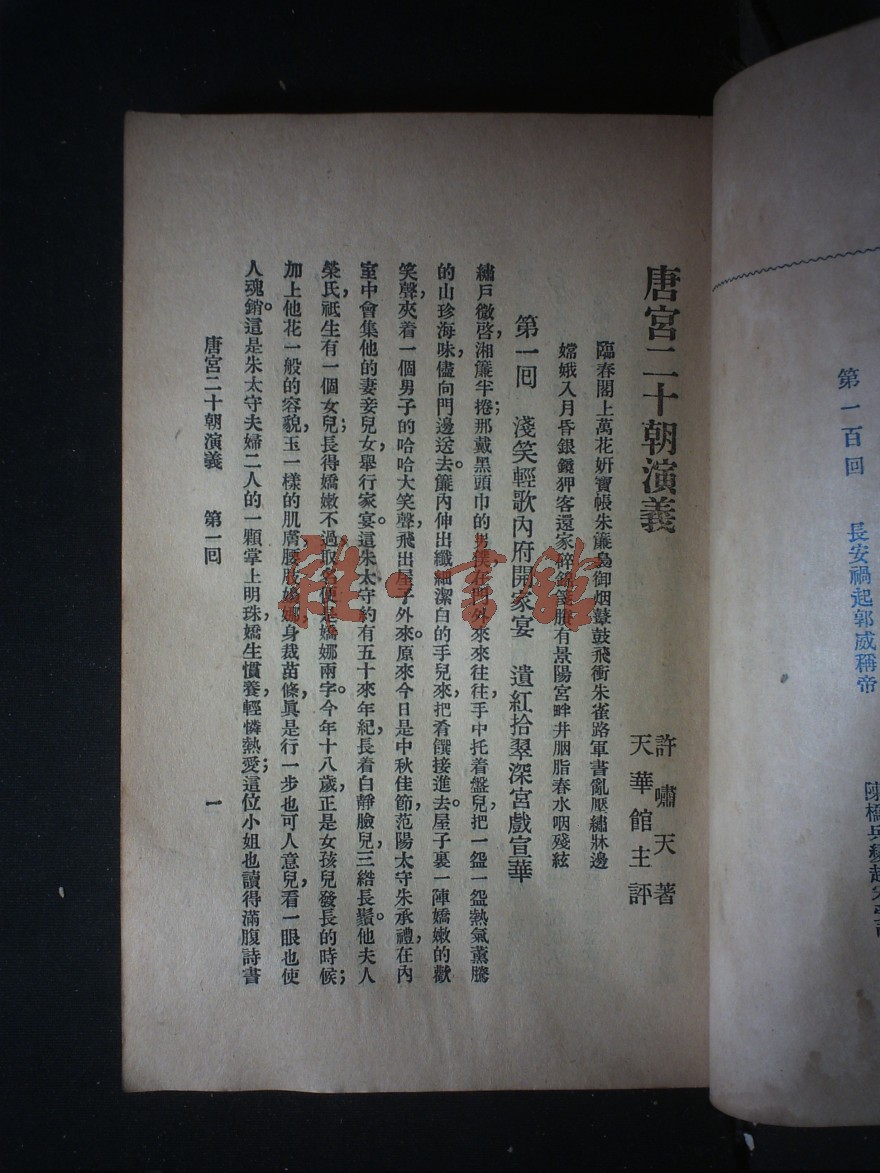 第一百回　長安禍起郭威稱帝
唐宮二十朝演義
許嘯天著
天華館主評
臨春閣上萬花妍寶帳朱簾裊御烟鼙鼓飛衝朱雀路軍書亂壓繡牀邊
嫦娥入月昏銀鏡狎客還家碎錦箋賸有景陽宮畔井胭脂春水咽殘絃
第一回　淺笑輕歌內府開家宴　遺紅拾翠深宮戲宣華
繡戶微啓，湘簾半捲；那戴黑頭巾的男僕在門外來來往往，手中托着盤兒，把一盌一盌熱氣薰騰
的山珍海味，儘向門邊送去。簾內伸出纖細潔白的手兒來，把肴饌接進去。屋子裏一陣嬌嫩的歡
笑聲，夾着一個男子的哈哈大笑聲，飛出屋子外來。原來今日是中秋佳節，范陽太守朱承禮，在內
室中會集他的妻妾兒女，舉行家宴。這朱太守約有五十來年紀，長着白靜臉兒，三綹長鬚。他夫人
榮氏，祇生有一個女兒；長得嬌嫩不過，取名便是嬌娜兩字。今年十八歲，正是女孩兒發長的時候；
加上他花一般的容貌，玉一樣的肌膚，腰肢嬝娜，身裁苗條，眞是行一步也可人意兒，看一眼也使
人魂銷。這是朱太守夫婦二人的一顆掌上明珠，嬌生慣養，輕憐熱愛；這位小姐也讀得滿腹詩書
唐宮二十朝演義　第一回
一
雜·書館